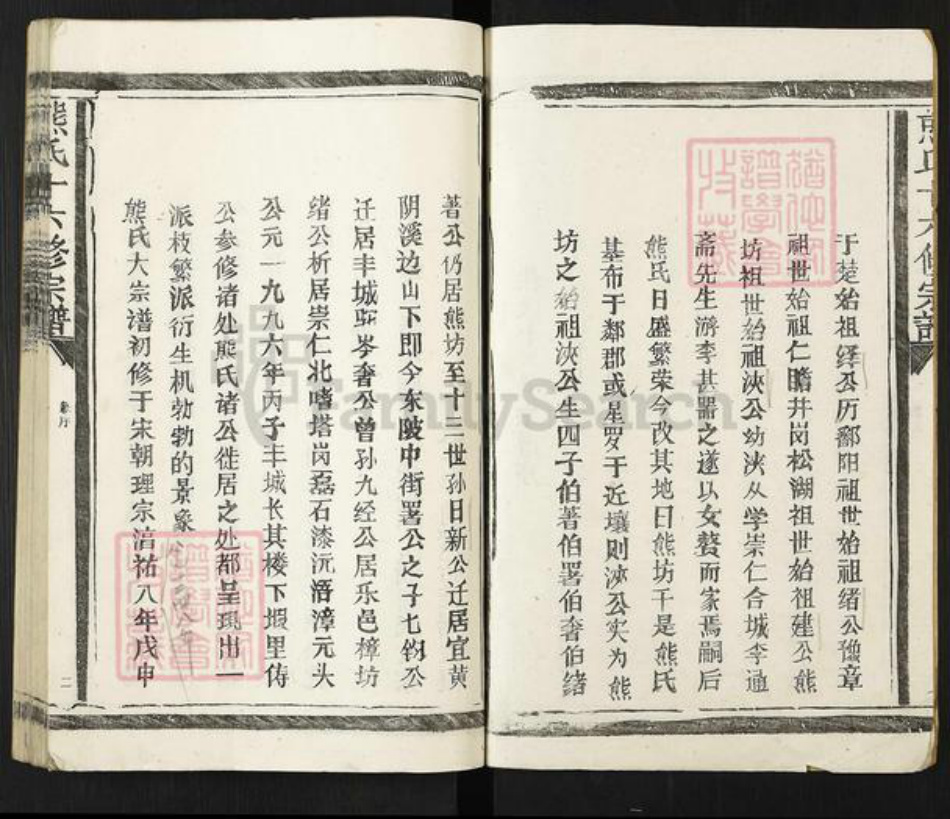 熊氏十六修宗譜
于楚始祖绎公历鄱阳祖世始祖绪公豫章
祖世始祖仁瞻井岗松湖祖世始祖建公熊
坊祖世始祖浃公幼浃从学崇仁合城李通
斋先生游李甚器之遂以女赘而家焉嗣后
熊氏日盛繁荣今改其地曰熊坊于是熊氏
基布于鄰郡或星罗于近壤则浃公实为熊
坊之始祖浃公生四子伯著伯署伯奢伯绪
著公仍居熊坊至十三世孙日新公迁居宜黄
阴溪边山下即今东陂中街署公之子七钧公
迁居丰城
岑奢公曾孙九经公居乐邑樟坊
绪公析居崇仁北嗜塔岗磊石漆沅浯漳元头
公元一九九六年丙子丰城长其楼下塅里俦
公参修诸处熊氏诸公徙居之处都呈现出一
派枝繁派衍生机勃勃的景象
熊氏大宗谱初修于宋朝理宗淯祐八年戊申
熊氏十六修宗譜
序
二
FamilySearch